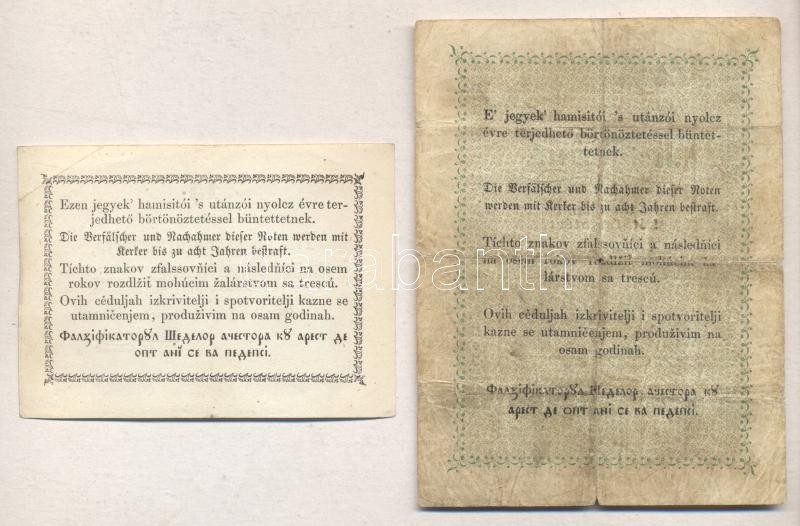 Ezen jegyek' hamisitói 's utánzói nyolcz évre ter-
jedhető börtönöztetéssel büntettetnek.
Die Verfälscher und Nachahmer dieser Noten werden mit
Kerker bis zu acht Jahren bestraft.
Tíchto znakov zfalssovňíci a následňíci na osem
rokov rozdlžiť mohúcim žalárstvom sa trescú.
Ovih céduljah izkrivitelji i spotvoritelji kazne se
utamničenjem, produživim na osam godinah.
Фалꙃіфікаторꙋл Шеделор ачестора кꙋ арест де
опт анї се ва педепсі.
E' jegyek' hamisitói 's utánzói nyolcz
évre terjedhető börtönöztetéssel büntet-
tetnek.
Die Verfälscher und Nachahmer dieser Noten
werden mit Kerker bis zu acht Jahren bestraft.
Tíchto znakov zfalssovňíci a následňíci
na osem rokov rozdlžiť mohúcim ža-
lárstvom sa trescú.
Ovih céduljah izkrivitelji i spotvoritelji
kazne se utamničenjem, produživim na
osam godinah.
Фалꙃіфікаторꙋл Шеделор ачестора кꙋ
арест де опт анї се ва педепсі.
darabanth